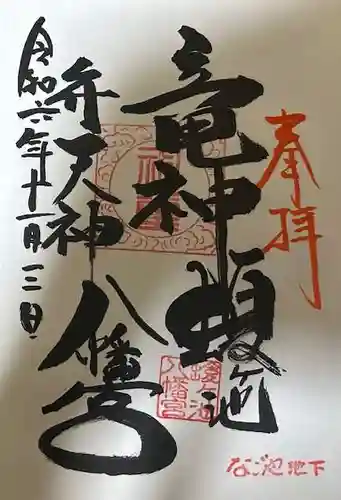 奉拝
竜神 蝮池
八幡宮
弁天神
令和六年十一月三日
蝮池
八幡宮
なごや池下